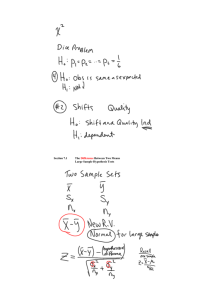 χ²
Die Problem
H₀: p₁ = p₂ = ... = p₆ = 1/6
H₀: obs is same as expected
H₁: not
#2 Shifts Quality
H₀: Shift and Quality Ind
H₁: dependent
Section 7.2 The Difference Between Two Means
Large-Sample Hypothesis Tests
Two Sample Sets
x̄ ȳ
Sₓ Sᵧ
nₓ nᵧ
x̄-ȳ New R.V.
Normal for large samples
Z = (x̄-ȳ) - hypothesized difference